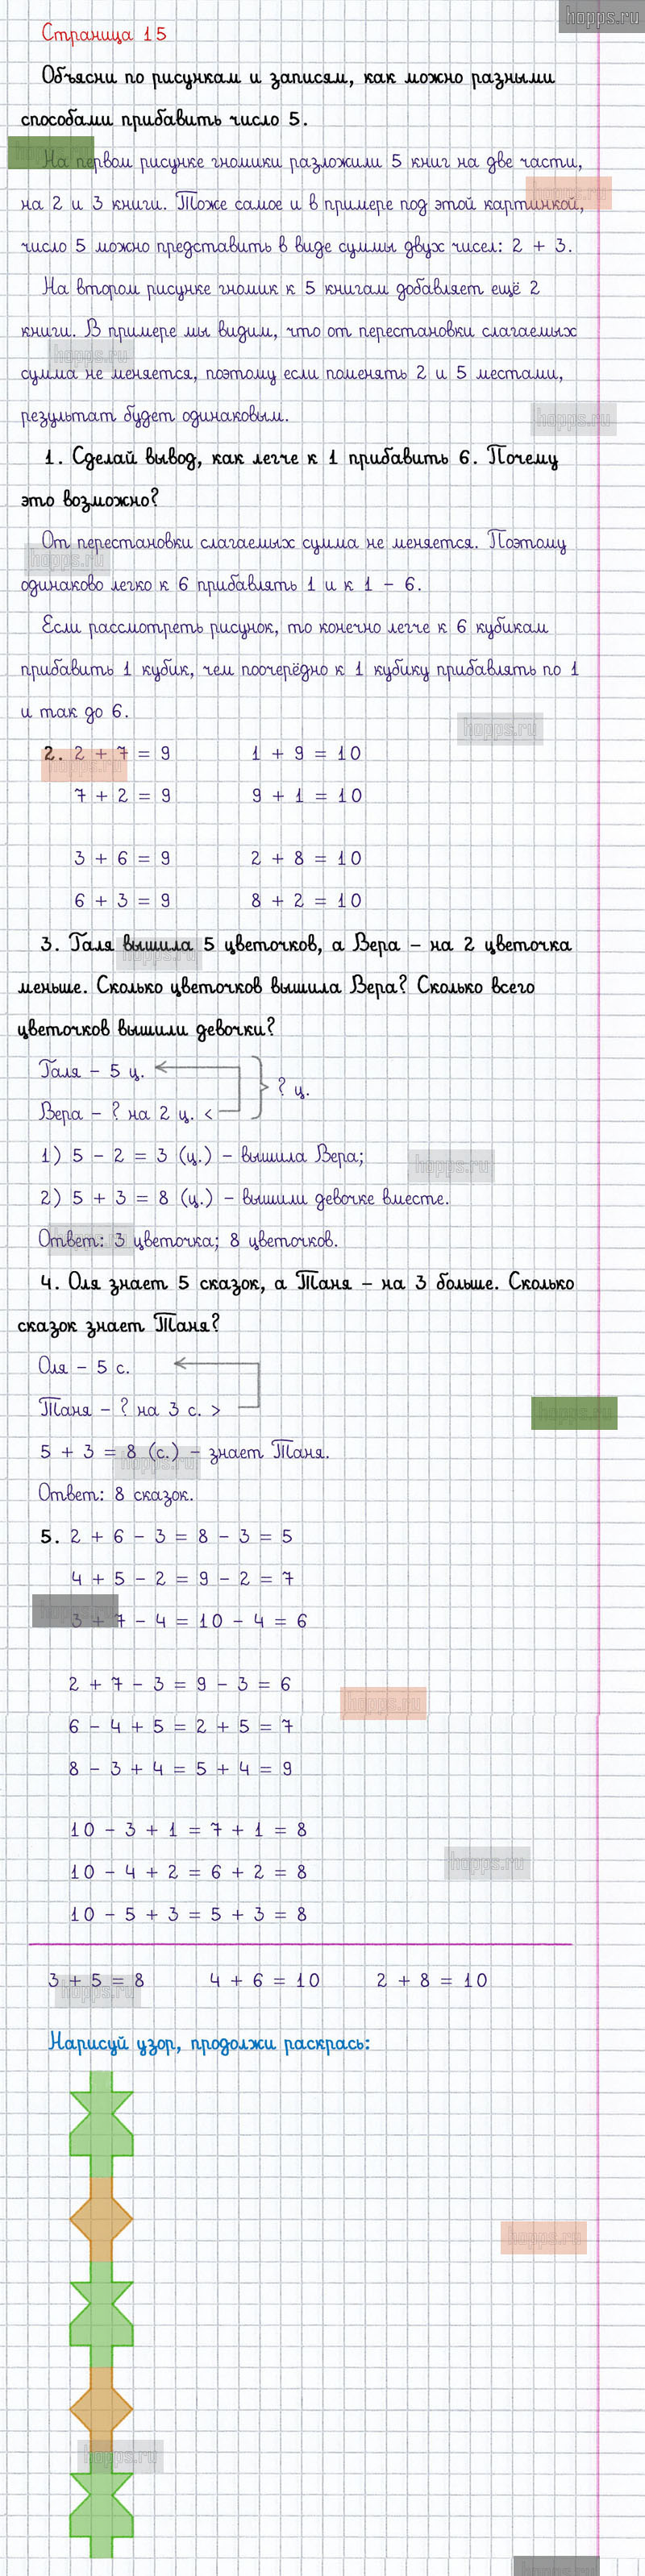 hopps.ru
Страница 15
Объясни по рисункам и записям, как можно разными
способами прибавить число 5.
На первом рисунке гномики разложили 5 книг на две части,
на 2 и 3 книги. Тоже самое и в примере под этой картинкой,
число 5 можно представить в виде суммы двух чисел: 2 + 3.
На втором рисунке гномик к 5 книгам добавляет ещё 2
книги. В примере мы видим, что от перестановки слагаемых
сумма не меняется, поэтому если поменять 2 и 5 местами,
результат будет одинаковым.
1. Сделай вывод, как легче к 1 прибавить 6. Почему
это возможно?
От перестановки слагаемых сумма не меняется. Поэтому
одинаково легко к 6 прибавлять 1 и к 1 – 6.
Если рассмотреть рисунок, то конечно легче к 6 кубикам
прибавить 1 кубик, чем поочерёдно к 1 кубику прибавлять по 1
и так до 6.
2. 2 + 7 = 9 1 + 9 = 10
7 + 2 = 9 9 + 1 = 10
3 + 6 = 9 2 + 8 = 10
6 + 3 = 9 8 + 2 = 10
3. Галя вышила 5 цветочков, а Вера – на 2 цветочка
меньше. Сколько цветочков вышила Вера? Сколько всего
цветочков вышили девочки?
Галя – 5 ц.
? ц.
Вера – ? на 2 ц. <
1) 5 – 2 = 3 (ц.) – вышила Вера;
2) 5 + 3 = 8 (ц.) – вышили девочке вместе.
Ответ: 3 цветочка; 8 цветочков.
4. Оля знает 5 сказок, а Таня – на 3 больше. Сколько
сказок знает Таня?
Оля – 5 с.
Таня – ? на 3 с. >
5 + 3 = 8 (с.) – знает Таня.
Ответ: 8 сказок.
5. 2 + 6 – 3 = 8 – 3 = 5
4 + 5 – 2 = 9 – 2 = 7
3 + 7 – 4 = 10 – 4 = 6
2 + 7 – 3 = 9 – 3 = 6
6 – 4 + 5 = 2 + 5 = 7
8 – 3 + 4 = 5 + 4 = 9
10 – 3 + 1 = 7 + 1 = 8
10 – 4 + 2 = 6 + 2 = 8
10 – 5 + 3 = 5 + 3 = 8
3 + 5 = 8 4 + 6 = 10 2 + 8 = 10
Нарисуй узор, продолжи раскрась: